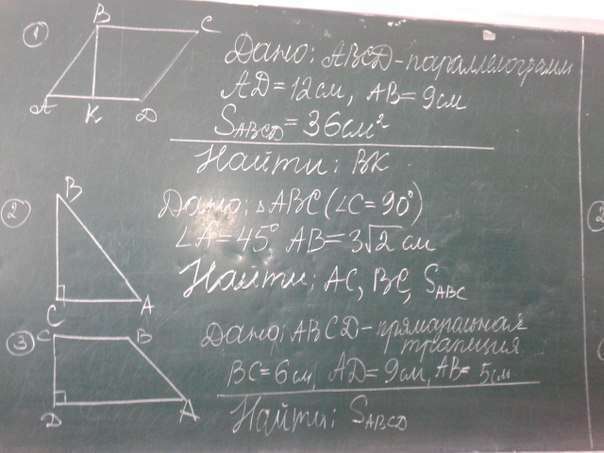 1
B
C
A
K
D
Дано: ABCD-параллелограмм
AD=12см, AB=9см
S_ABCD=36см²
Найти: BK
2
B
C
A
Дано: △ABC (∠C=90°)
∠A=45° AB=3√2 см
Найти: AC, BC, S_ABC
3
C
B
D
A
Дано: ABCD-прямоугольная
трапеция
BC=6см, AD=9см, AB=5см
Найти: S_ABCD